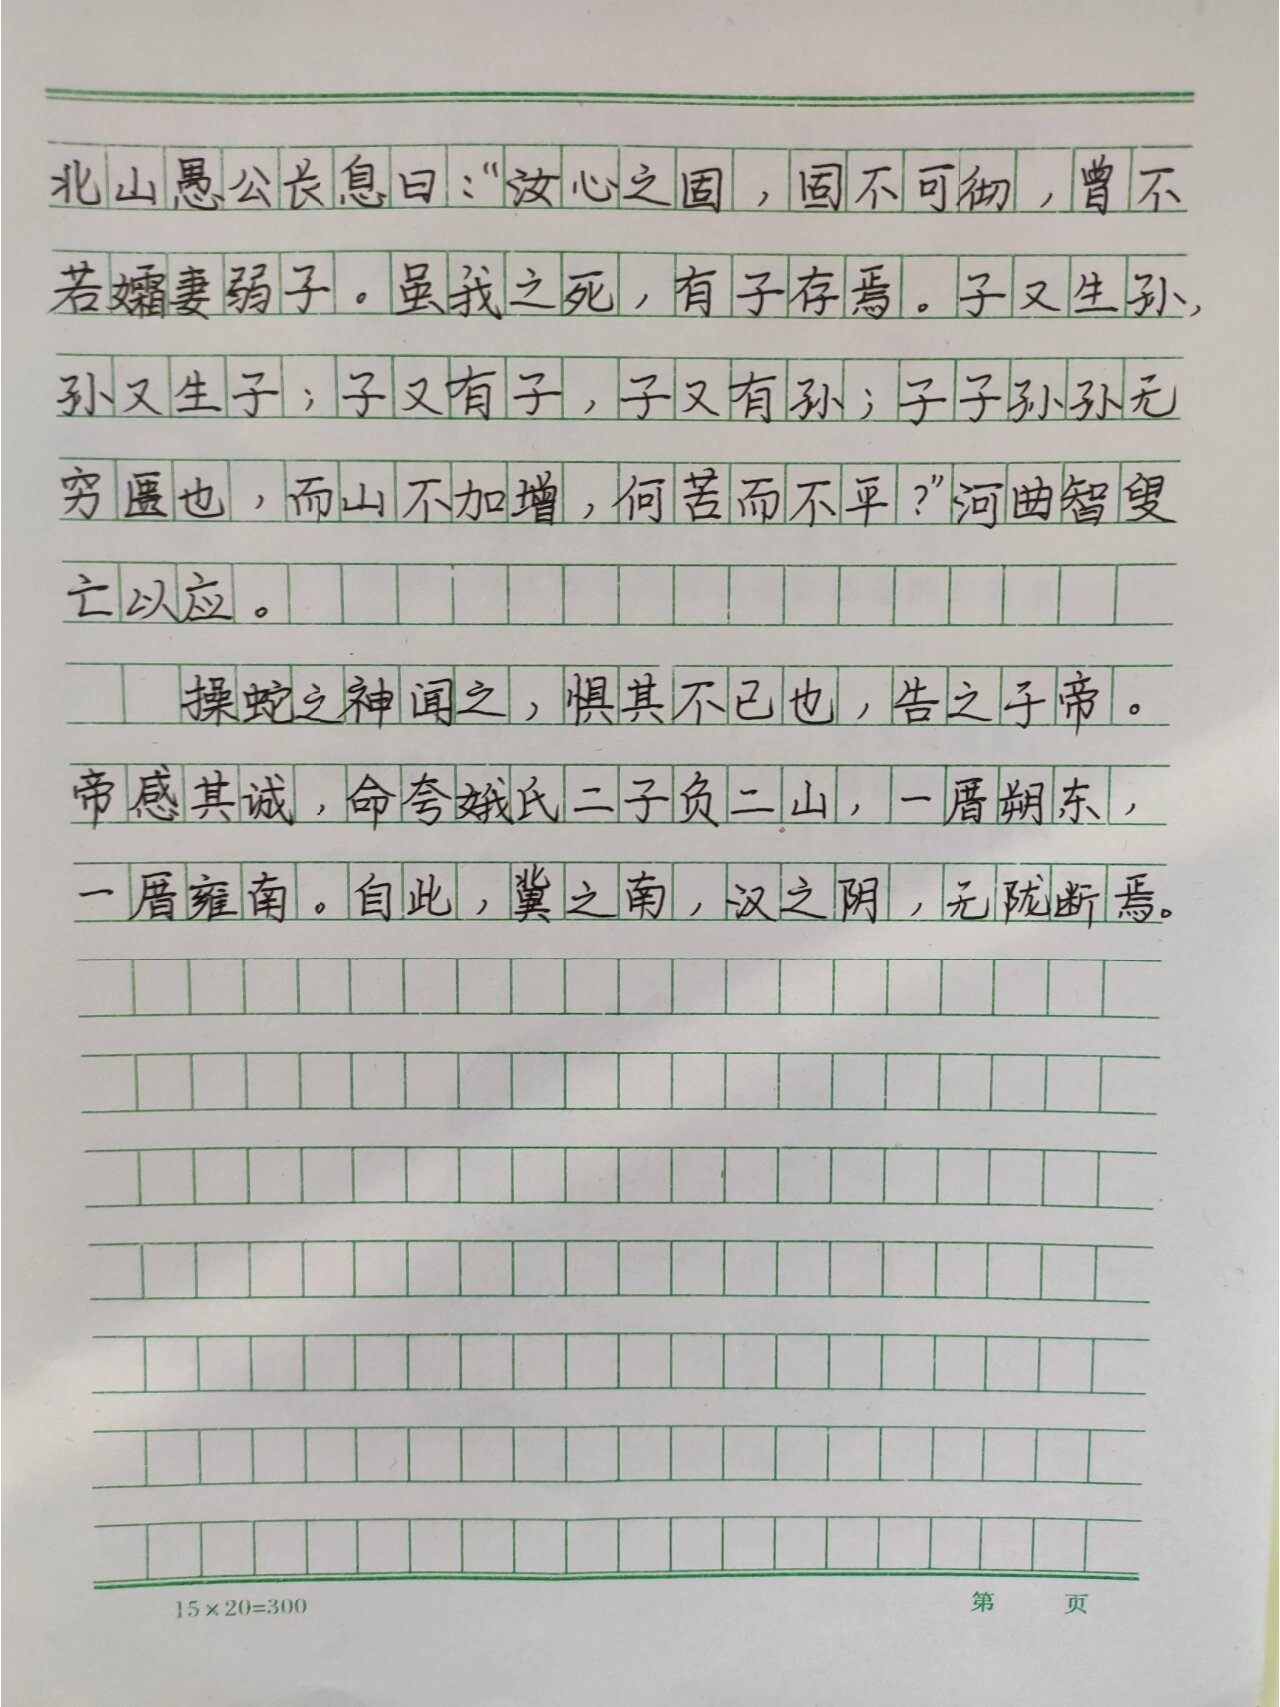 北山愚公长息曰：“汝心之固，固不可彻，曾不
若孀妻弱子。虽我之死，有子存焉。子又生孙，
孙又生子；子又有子，子又有孙；子子孙孙无
穷匮也，而山不加增，何苦而不平？”河曲智叟
亡以应。
操蛇之神闻之，惧其不已也，告之于帝。
帝感其诚，命夸娥氏二子负二山，一厝朔东，
一厝雍南。自此，冀之南，汉之阴，无陇断焉。
15×20=300 第 页